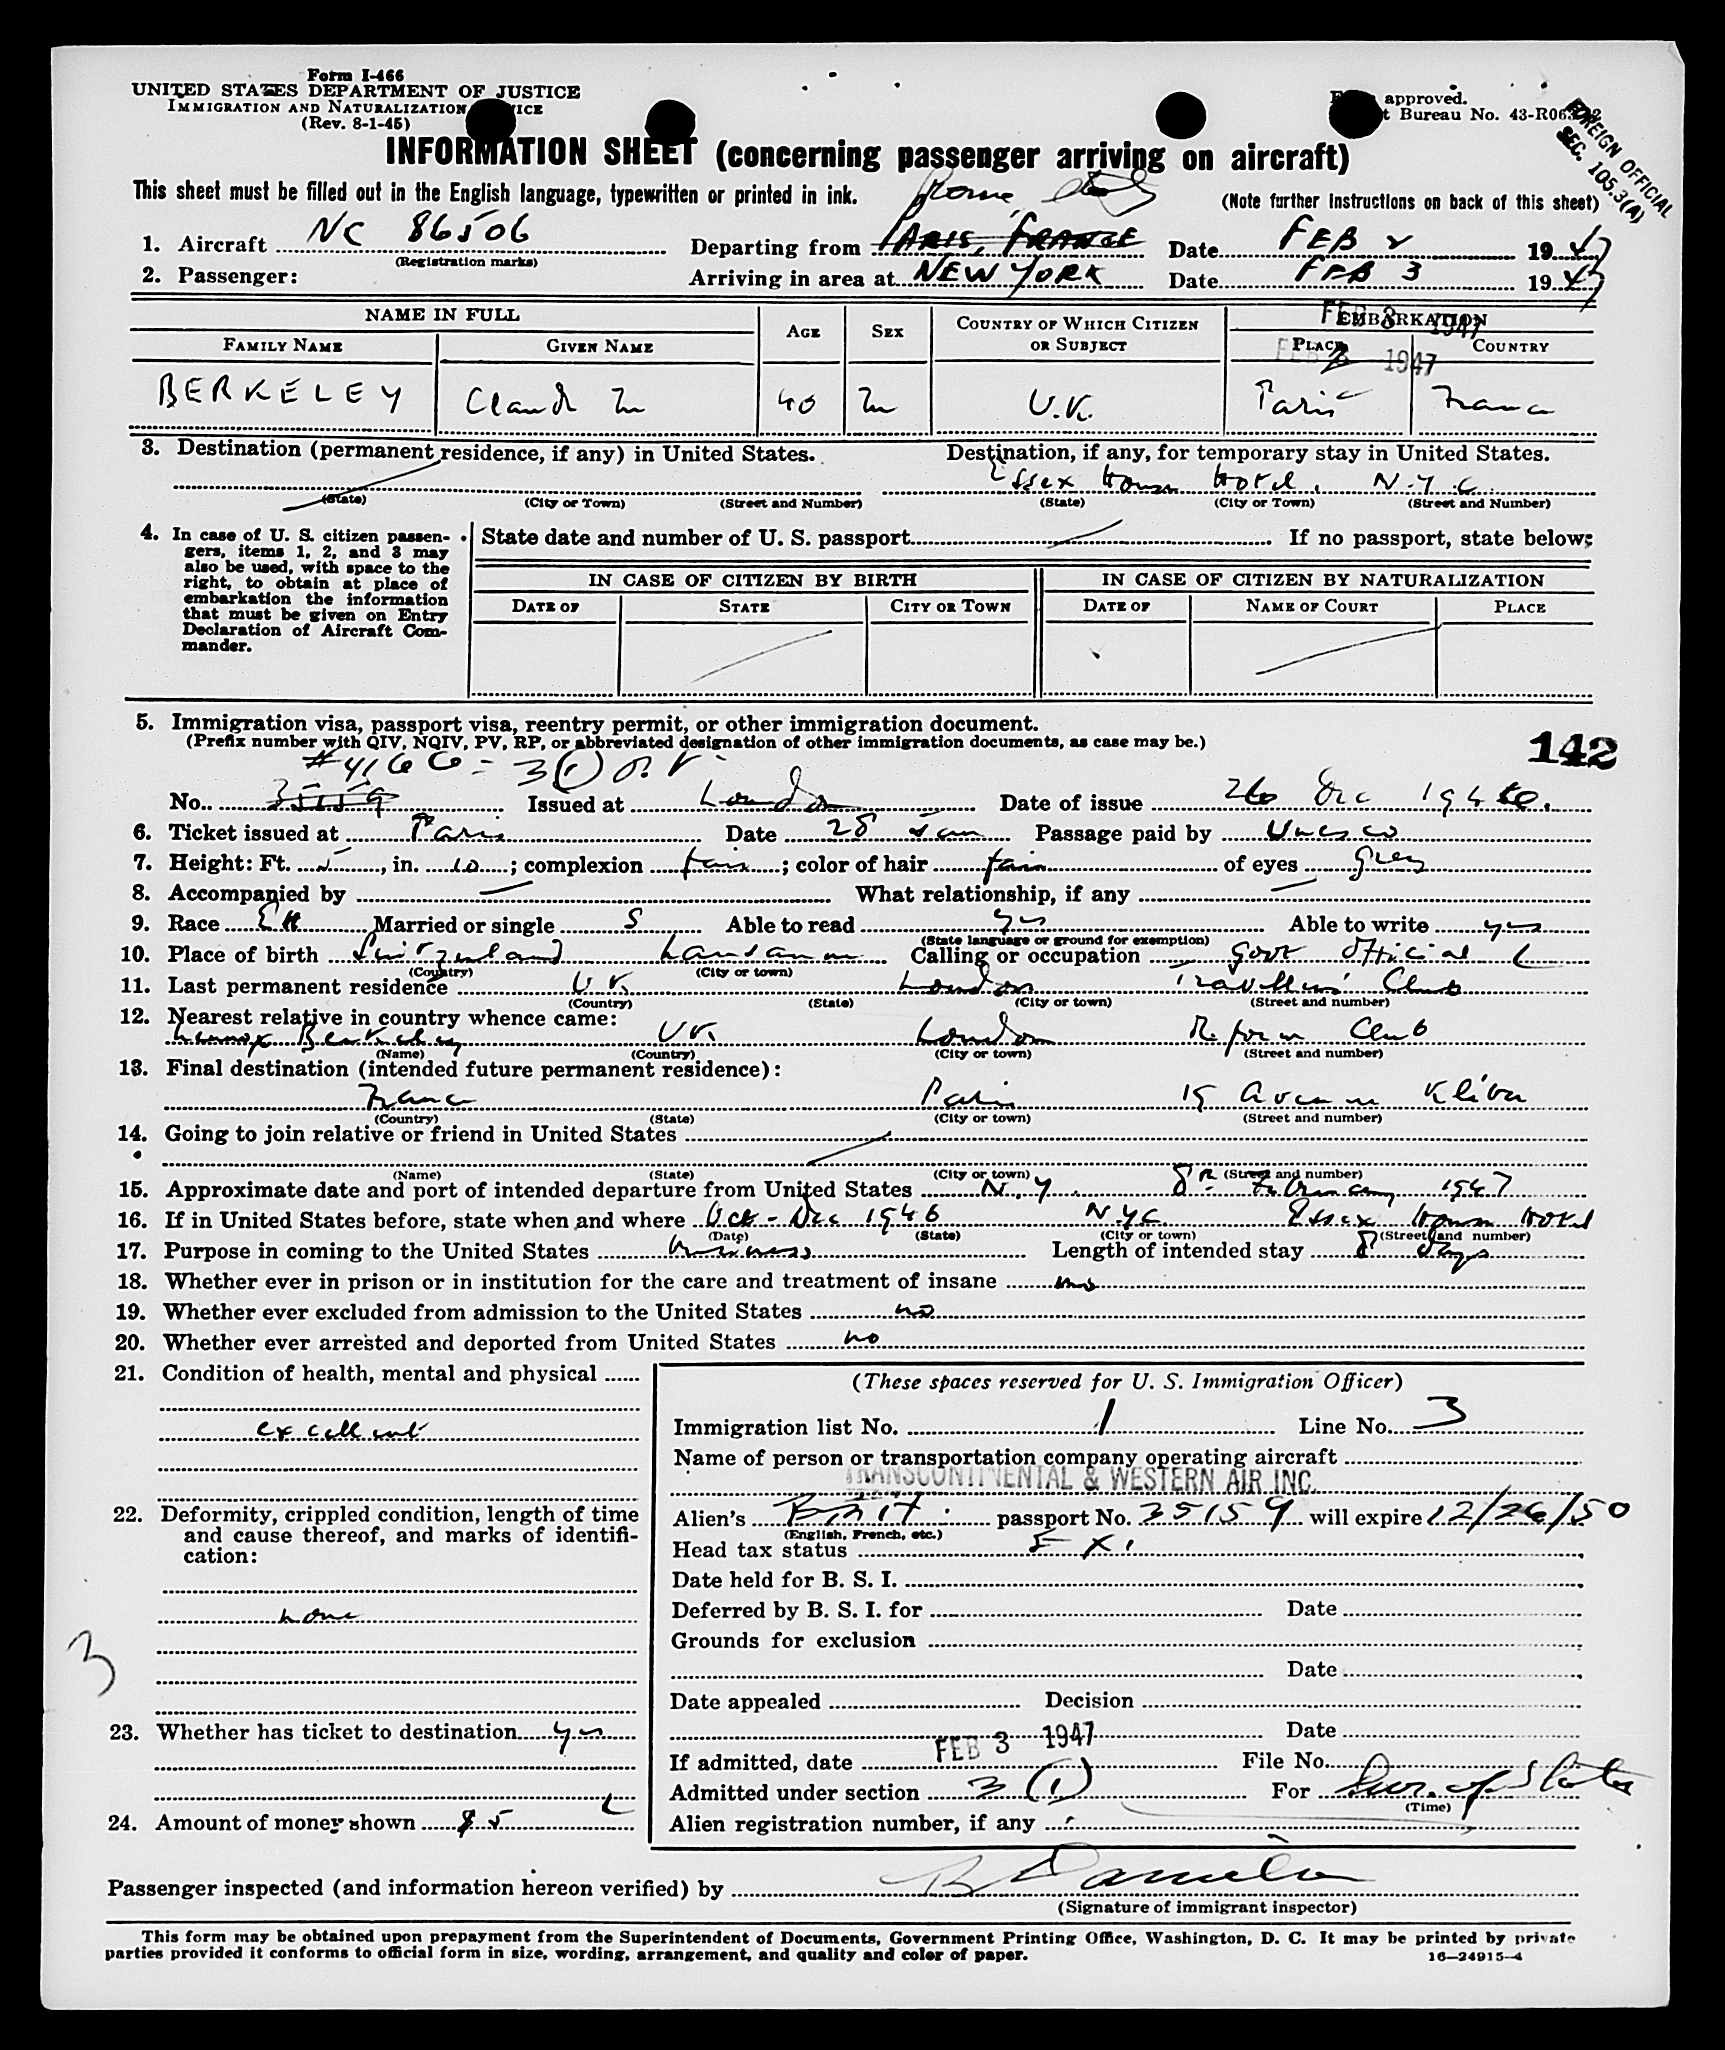 Form I-466
UNITED STATES DEPARTMENT OF JUSTICE
IMMIGRATION AND NATURALIZATION
(Rev. 8-1-45)
approved.
Bureau No. 43-R063
FOREIGN OFFICIAL
SEC. 105.3(A)
INFORMATION SHEET (concerning passenger arriving on aircraft)
This sheet must be filled out in the English language, typewritten or printed in ink.
Rome, Italy
(Note further instructions on back of this sheet)
1. Aircraft NC 86506 Departing from PARIS, FRANCE Date FEB 2 1947
(Registration marks)
2. Passenger: Arriving in area at NEW YORK Date FEB 3 1947
NAME IN FULL AGE SEX COUNTRY OF WHICH CITIZEN OR SUBJECT EMBARKATION
FEB 3 1947
FAMILY NAME GIVEN NAME PLACE COUNTRY
FEB 3 1947
BERKELEY Claude M 40 M U.K. Paris France
3. Destination (permanent residence, if any) in United States. Destination, if any, for temporary stay in United States.
Essex House Hotel, N.Y.C.
(State) (City or Town) (Street and Number) (State) (City or Town) (Street and Number)
4. In case of U. S. citizen passengers, items 1, 2, and 3 may also be used, with space to the right, to obtain at place of embarkation the information that must be given on Entry Declaration of Aircraft Commander.
State date and number of U. S. passport If no passport, state below:
IN CASE OF CITIZEN BY BIRTH IN CASE OF CITIZEN BY NATURALIZATION
DATE OF STATE CITY OR TOWN DATE OF NAME OF COURT PLACE
5. Immigration visa, passport visa, reentry permit, or other immigration document.
(Prefix number with QIV, NQIV, PV, RP, or abbreviated designation of other immigration documents, as case may be.)
142
#4166 = 3(1) O.V.
No. 35159 Issued at London Date of issue 26 Dec 1946.
6. Ticket issued at Paris Date 28 Jan Passage paid by Unesco
7. Height: Ft. 5, in. 10; complexion fair; color of hair fair of eyes grey
8. Accompanied by — What relationship, if any —
9. Race EN Married or single S Able to read yes Able to write yes
(State language or ground for exemption)
10. Place of birth Switzerland Lausanne Calling or occupation Govt Official
(Country) (City or town)
11. Last permanent residence U.K. London Travellers' Club
(Country) (State) (City or town) (Street and number)
12. Nearest relative in country whence came:
Lennox Berkeley UK London Reform Club
(Name) (Country) (City or town) (Street and number)
13. Final destination (intended future permanent residence):
France Paris 19 Avenue Kléber
(Country) (State) (City or town) (Street and number)
14. Going to join relative or friend in United States
(Name) (State) (City or town) (Street and number)
15. Approximate date and port of intended departure from United States N.Y. 8th February 1947
16. If in United States before, state when and where Oct - Dec 1946 NYC Essex House Hotel
(Date) (State) (City or town) (Street and number)
17. Purpose in coming to the United States business Length of intended stay 8 days
18. Whether ever in prison or in institution for the care and treatment of insane no
19. Whether ever excluded from admission to the United States no
20. Whether ever arrested and deported from United States no
21. Condition of health, mental and physical
excellent
22. Deformity, crippled condition, length of time and cause thereof, and marks of identification:
none
3
23. Whether has ticket to destination yes
24. Amount of money shown $5
(These spaces reserved for U. S. Immigration Officer)
Immigration list No. 1 Line No. 3
Name of person or transportation company operating aircraft
TRANSCONTINENTAL & WESTERN AIR INC.
Alien's Brit. passport No. 35159 will expire 12/26/50
(English, French, etc.)
Head tax status EX.
Date held for B. S. I.
Deferred by B. S. I. for Date
Grounds for exclusion
Date
Date appealed Decision
Date
If admitted, date FEB 3 1947 File No.
Admitted under section 3 (1) For Dur. of Status
(Time)
Alien registration number, if any
Passenger inspected (and information hereon verified) by
(Signature of immigrant inspector)
This form may be obtained upon prepayment from the Superintendent of Documents, Government Printing Office, Washington, D. C. It may be printed by private
parties provided it conforms to official form in size, wording, arrangement, and quality and color of paper.
16—24915-4